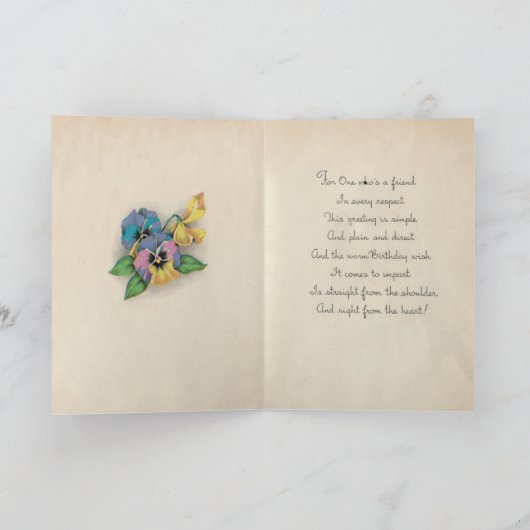 For One who's a friend
In every respect
This greeting is simple
And plain and direct
And the warm Birthday wish
It comes to impart
Is straight from the shoulder
And right from the heart!